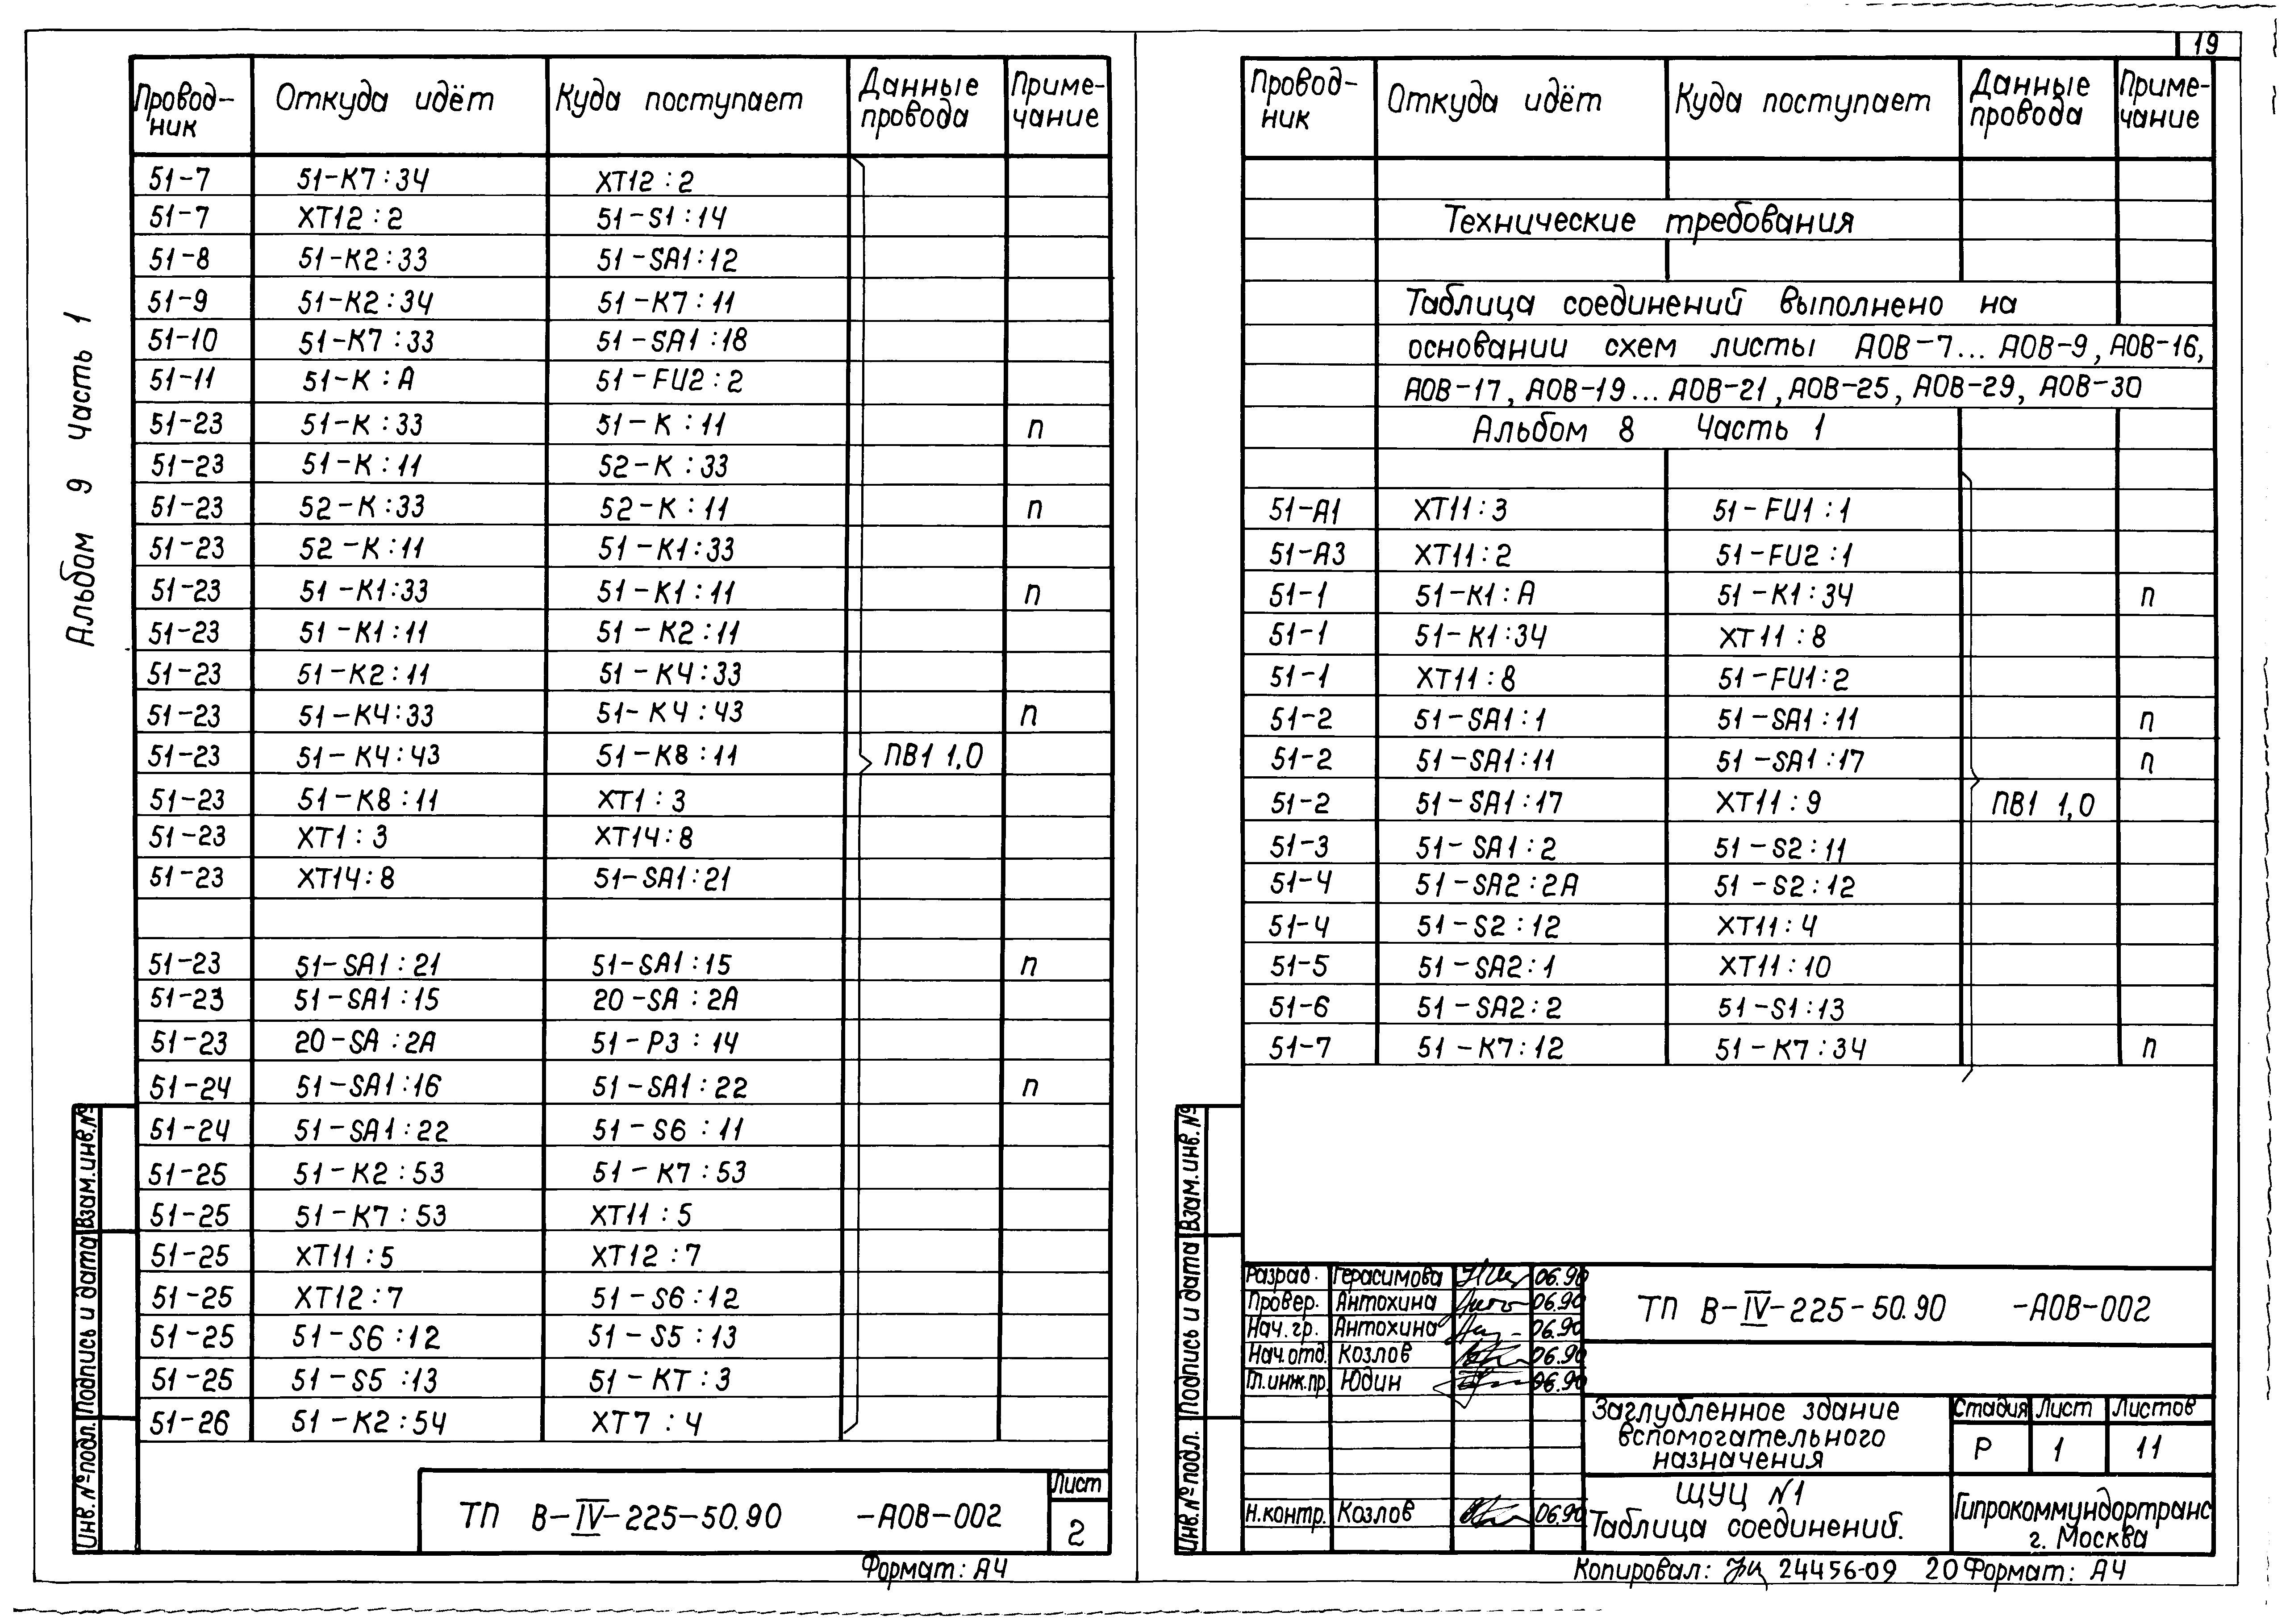 19
Альбом 9 Часть 1
Провод-ник Откуда идёт Куда поступает Данные провода Приме-чание
51-7 51-К7:34 ХТ12:2
51-7 ХТ12:2 51-S1:14
51-8 51-К2:33 51-SA1:12
51-9 51-К2:34 51-К7:11
51-10 51-К7:33 51-SA1:18
51-11 51-К:А 51-FU2:2
51-23 51-К:33 51-К:11 п
51-23 51-К:11 52-К:33
51-23 52-К:33 52-К:11 п
51-23 52-К:11 51-К1:33
51-23 51-К1:33 51-К1:11 п
51-23 51-К1:11 51-К2:11
51-23 51-К2:11 51-К4:33
51-23 51-К4:33 51-К4:43 п
51-23 51-К4:43 51-К8:11 ПВ1 1,0
51-23 51-К8:11 ХТ1:3
51-23 ХТ1:3 ХТ14:8
51-23 ХТ14:8 51-SA1:21
51-23 51-SA1:21 51-SA1:15 п
51-23 51-SA1:15 20-SA:2A
51-23 20-SA:2A 51-P3:14
51-24 51-SA1:16 51-SA1:22 п
51-24 51-SA1:22 51-S6:11
51-25 51-К2:53 51-К7:53
51-25 51-К7:53 ХТ11:5
51-25 ХТ11:5 ХТ12:7
51-25 ХТ12:7 51-S6:12
51-25 51-S6:12 51-S5:13
51-25 51-S5:13 51-КТ:3
51-26 51-К2:54 ХТ7:4
Взам.инв.№
Подпись и дата
Инв.№подл.
ТП В-IV-225-50.90 -АОВ-002
Лист
2
Формат: А4
Провод-ник Откуда идёт Куда поступает Данные провода Приме-чание
Технические требования
Таблица соединений выполнено на
основании схем листы АОВ-7... АОВ-9, АОВ-16,
АОВ-17, АОВ-19... АОВ-21, АОВ-25, АОВ-29, АОВ-30
Альбом 8 Часть 1
51-А1 ХТ11:3 51-FU1:1
51-А3 ХТ11:2 51-FU2:1
51-1 51-К1:А 51-К1:34 п
51-1 51-К1:34 ХТ11:8
51-1 ХТ11:8 51-FU1:2
51-2 51-SA1:1 51-SA1:11 п
51-2 51-SA1:11 51-SA1:17 п
51-2 51-SA1:17 ХТ11:9 ПВ1 1,0
51-3 51-SA1:2 51-S2:11
51-4 51-SA2:2A 51-S2:12
51-4 51-S2:12 ХТ11:4
51-5 51-SA2:1 ХТ11:10
51-6 51-SA2:2 51-S1:13
51-7 51-К7:12 51-К7:34 п
Взам.инв.№
Подпись и дата
Инв.№подл.
Разраб. Герасимова 06.90
Провер. Антохина 06.90
Нач.гр. Антохина 06.90
Нач.отд. Козлов 06.90
Гл.инж.пр. Юдин 06.90
Н.контр. Козлов 06.90
ТП В-IV-225-50.90 -АОВ-002
Заглубленное здание
вспомогательного
назначения
Стадия Лист Листов
Р 1 11
ЩУЦ №1
Таблица соединений.
Гипрокоммундортранс
г. Москва
Копировал: 24456-09 20 Формат: А4